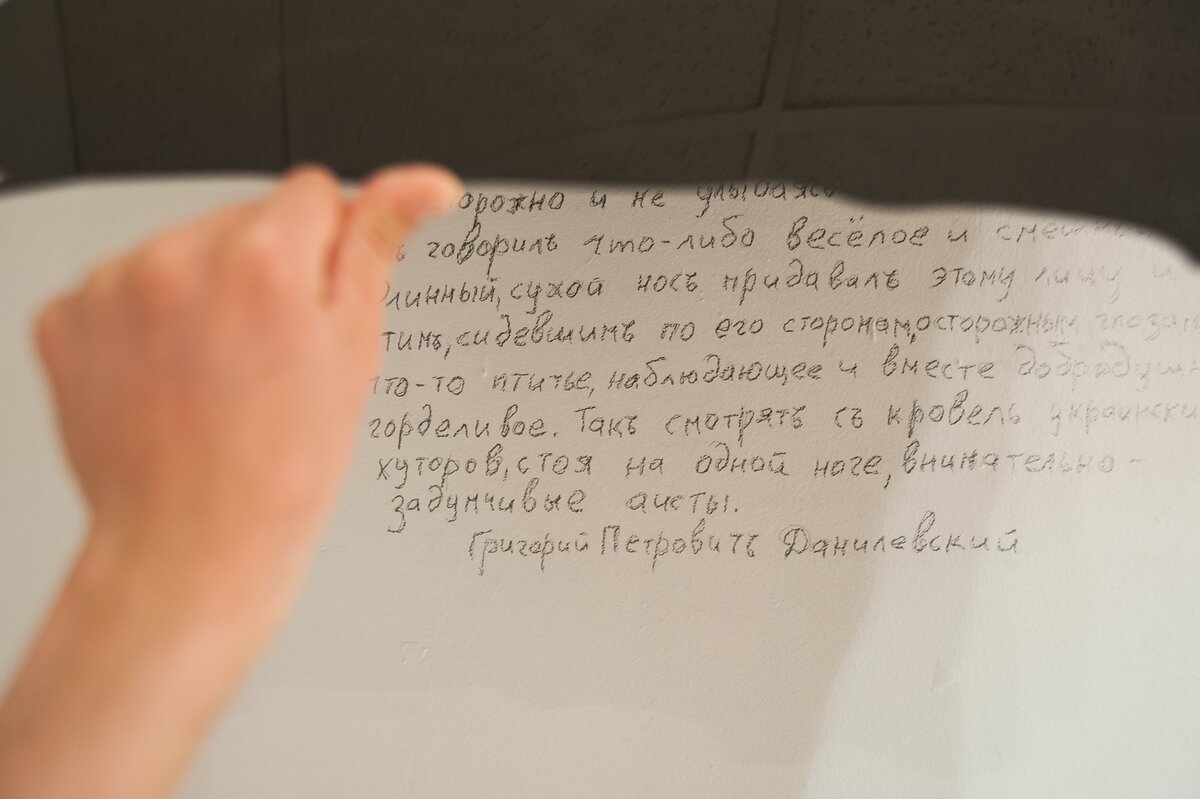 орожно и не улыбаясь
ъ говорилъ что-либо весёлое и смешно
длинный, сухой носъ придавалъ этому лицу и
тимъ, сидевшимъ по его сторонам, осторожным глазам
что-то птичье, наблюдающее и вместе добродушн
горделивое. Такъ смотрятъ съ кровель украински
хуторов, стоя на одной ноге, внимательно-
задумчивые аисты.
Григорий Петровичъ Данилевский